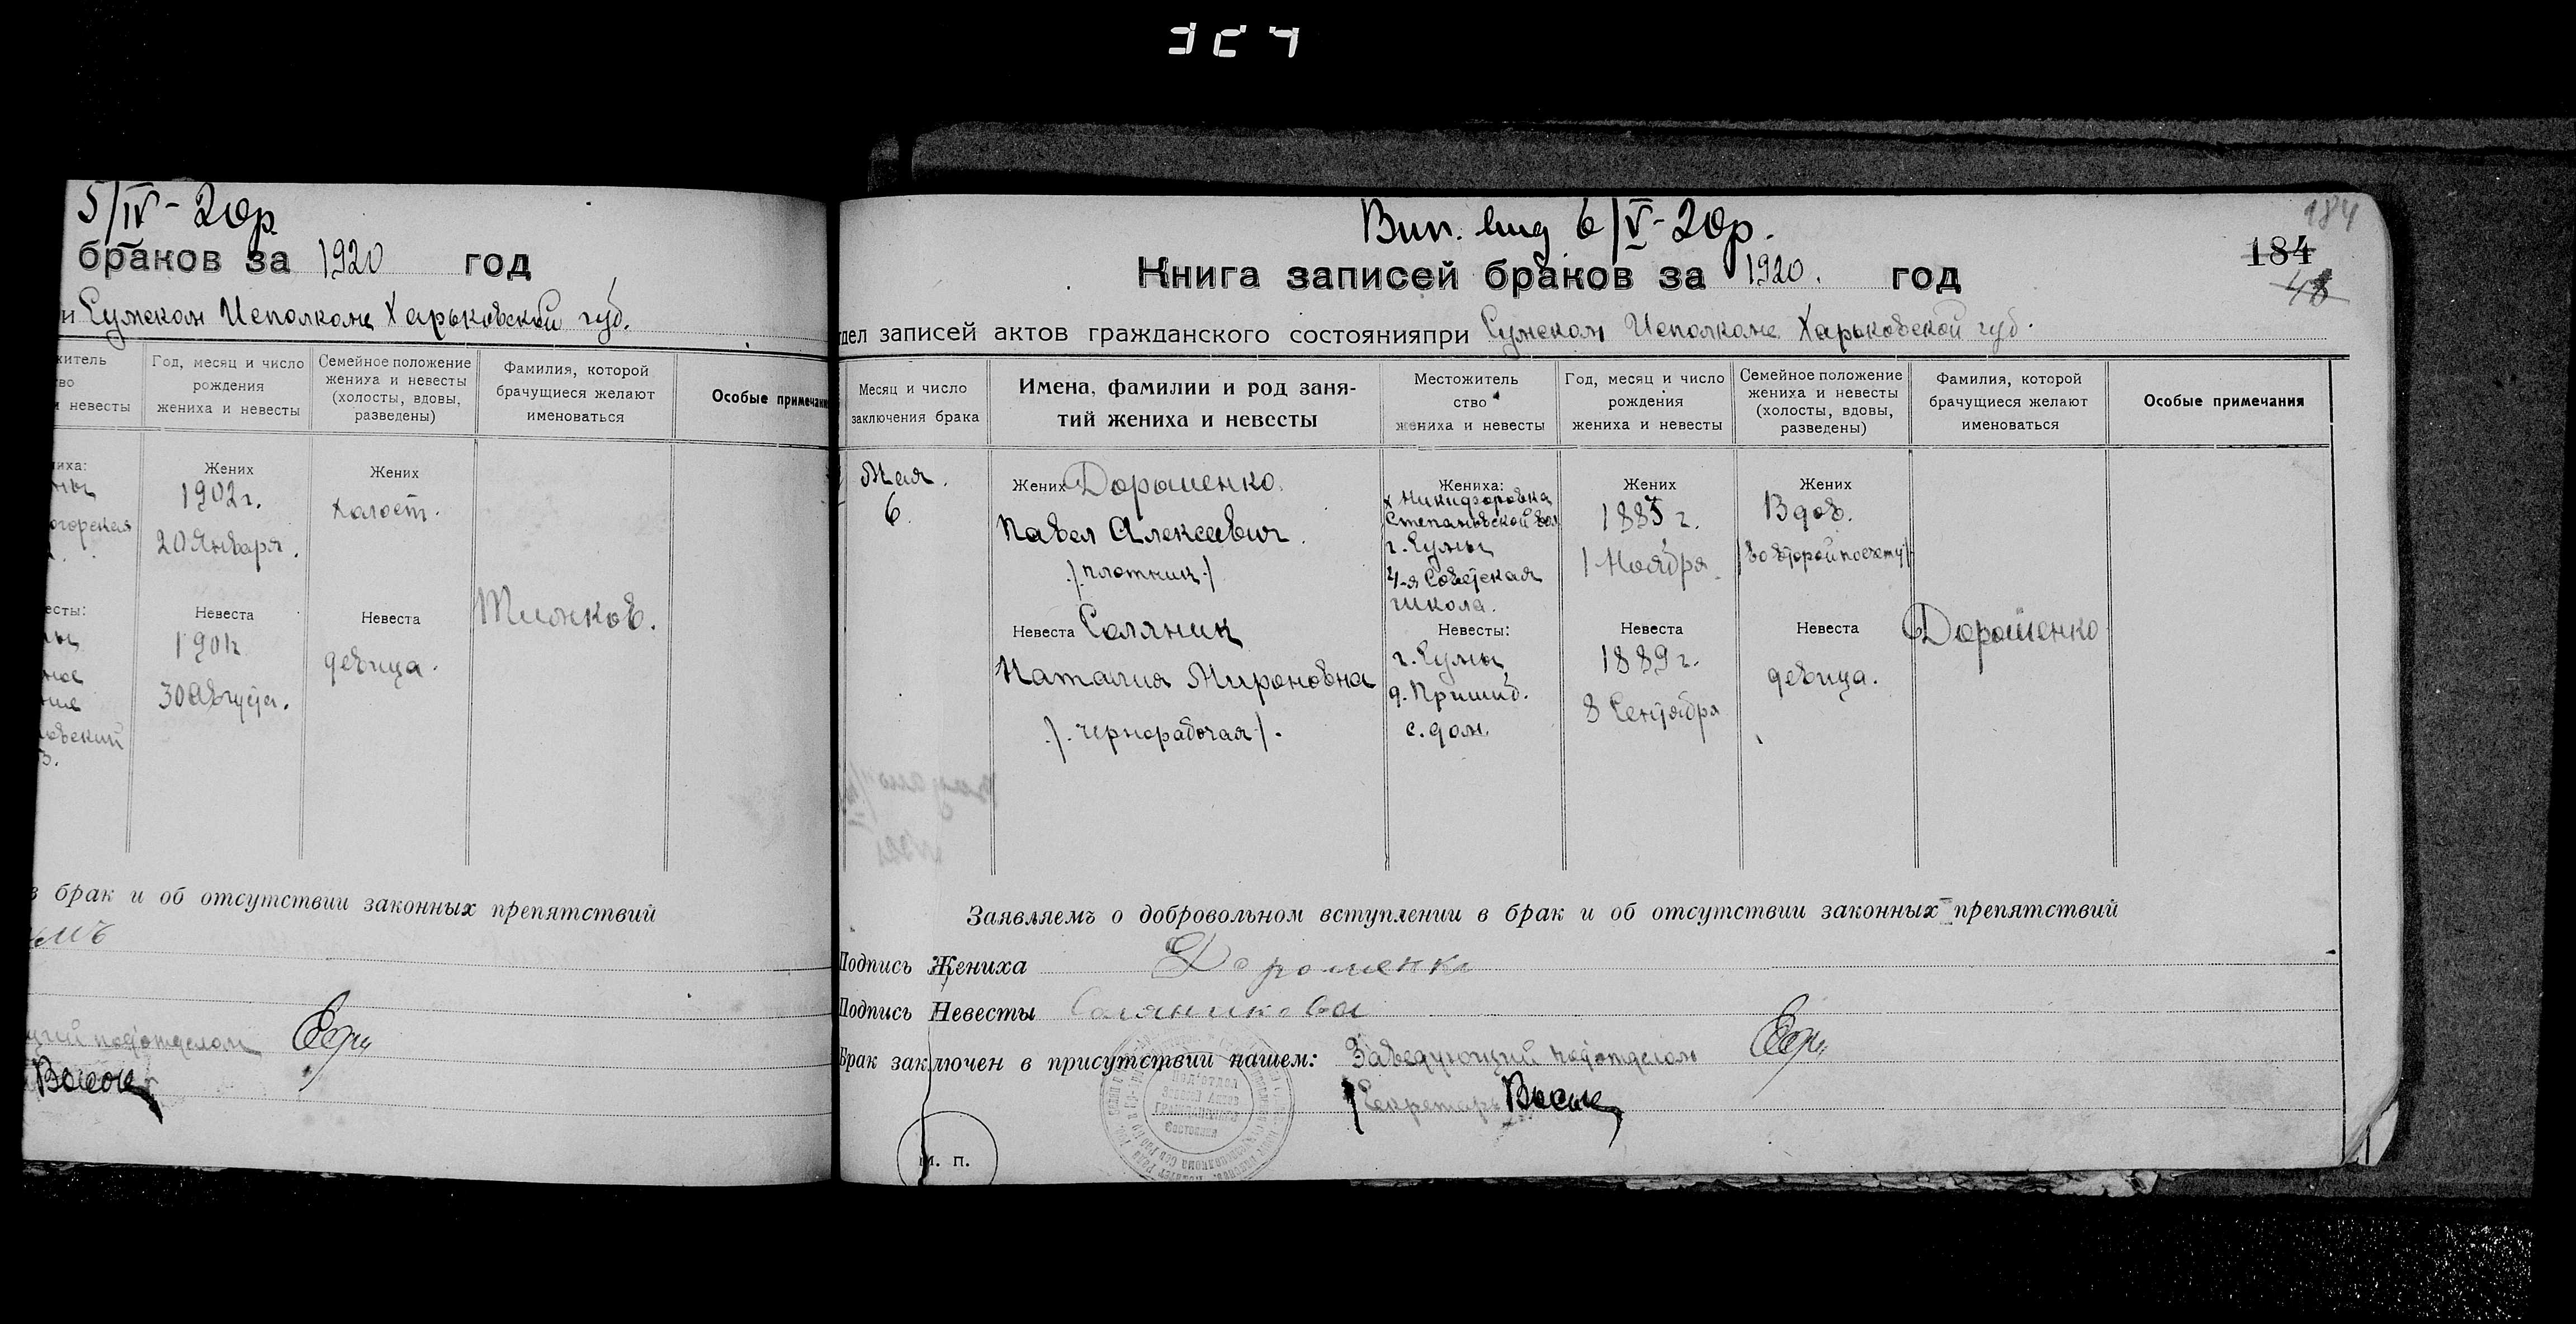 5/IV-20р.
браков за 1920 год
и Сумском Исполкоме Харьковской губ.
житель
во
и невесты
Год, месяц и число
рождения
жениха и невесты
Семейное положение
жениха и невесты
(холосты, вдовы,
разведены)
Фамилия, которой
брачущиеся желают
именоваться
Особые примечани
иха:
огорская
Жених
1902 г.
20 Января.
Жених
холост.
есты:
овский
в.
Невеста
30 Августа.
Невеста
девица.
в брак и об отсутствии законных препятствий
подотделом
184
Вип. вид 6/V-20р.
184
48
Книга записей браков за 1920. год
дел записей актов гражданского состоянияпри Сумском Исполкоме Харьковской губ.
Месяц и число
заключения брака
Имена, фамилии и род заня-
тий жениха и невесты
Местожитель
ство
жениха и невесты
Год, месяц и число
рождения
жениха и невесты
Семейное положение
жениха и невесты
(холосты, вдовы,
разведены)
Фамилия, которой
брачущиеся желают
именоваться
Особые примечания
Мая.
6.
Жених Дорошенко
Павел Алексеевич.
/.плотник./
Невеста Соляник
Наталия Мироновна
./. чернорабочая /.
Жениха:
х Никифоровка
Степановской вол
г. Сумы
4-я Советская
школа.
Невесты:
г. Сумы
д. Пришиб.
с. дом.
Жених
1885 г.
1 Ноября
Невеста
1889 г.
8 Сентября
Жених
Вдов.
/во второй по счету/
Невеста
девица.
Дорошенко
Заявляемъ о добровольном вступлении в брак и об отсутствии законных препятствий
Подпись Жениха Дорошенко
Подпись Невесты Соляникова
Брак заключен в присутствии нашем: Заведующий подотделом
Секретарь
м. п.